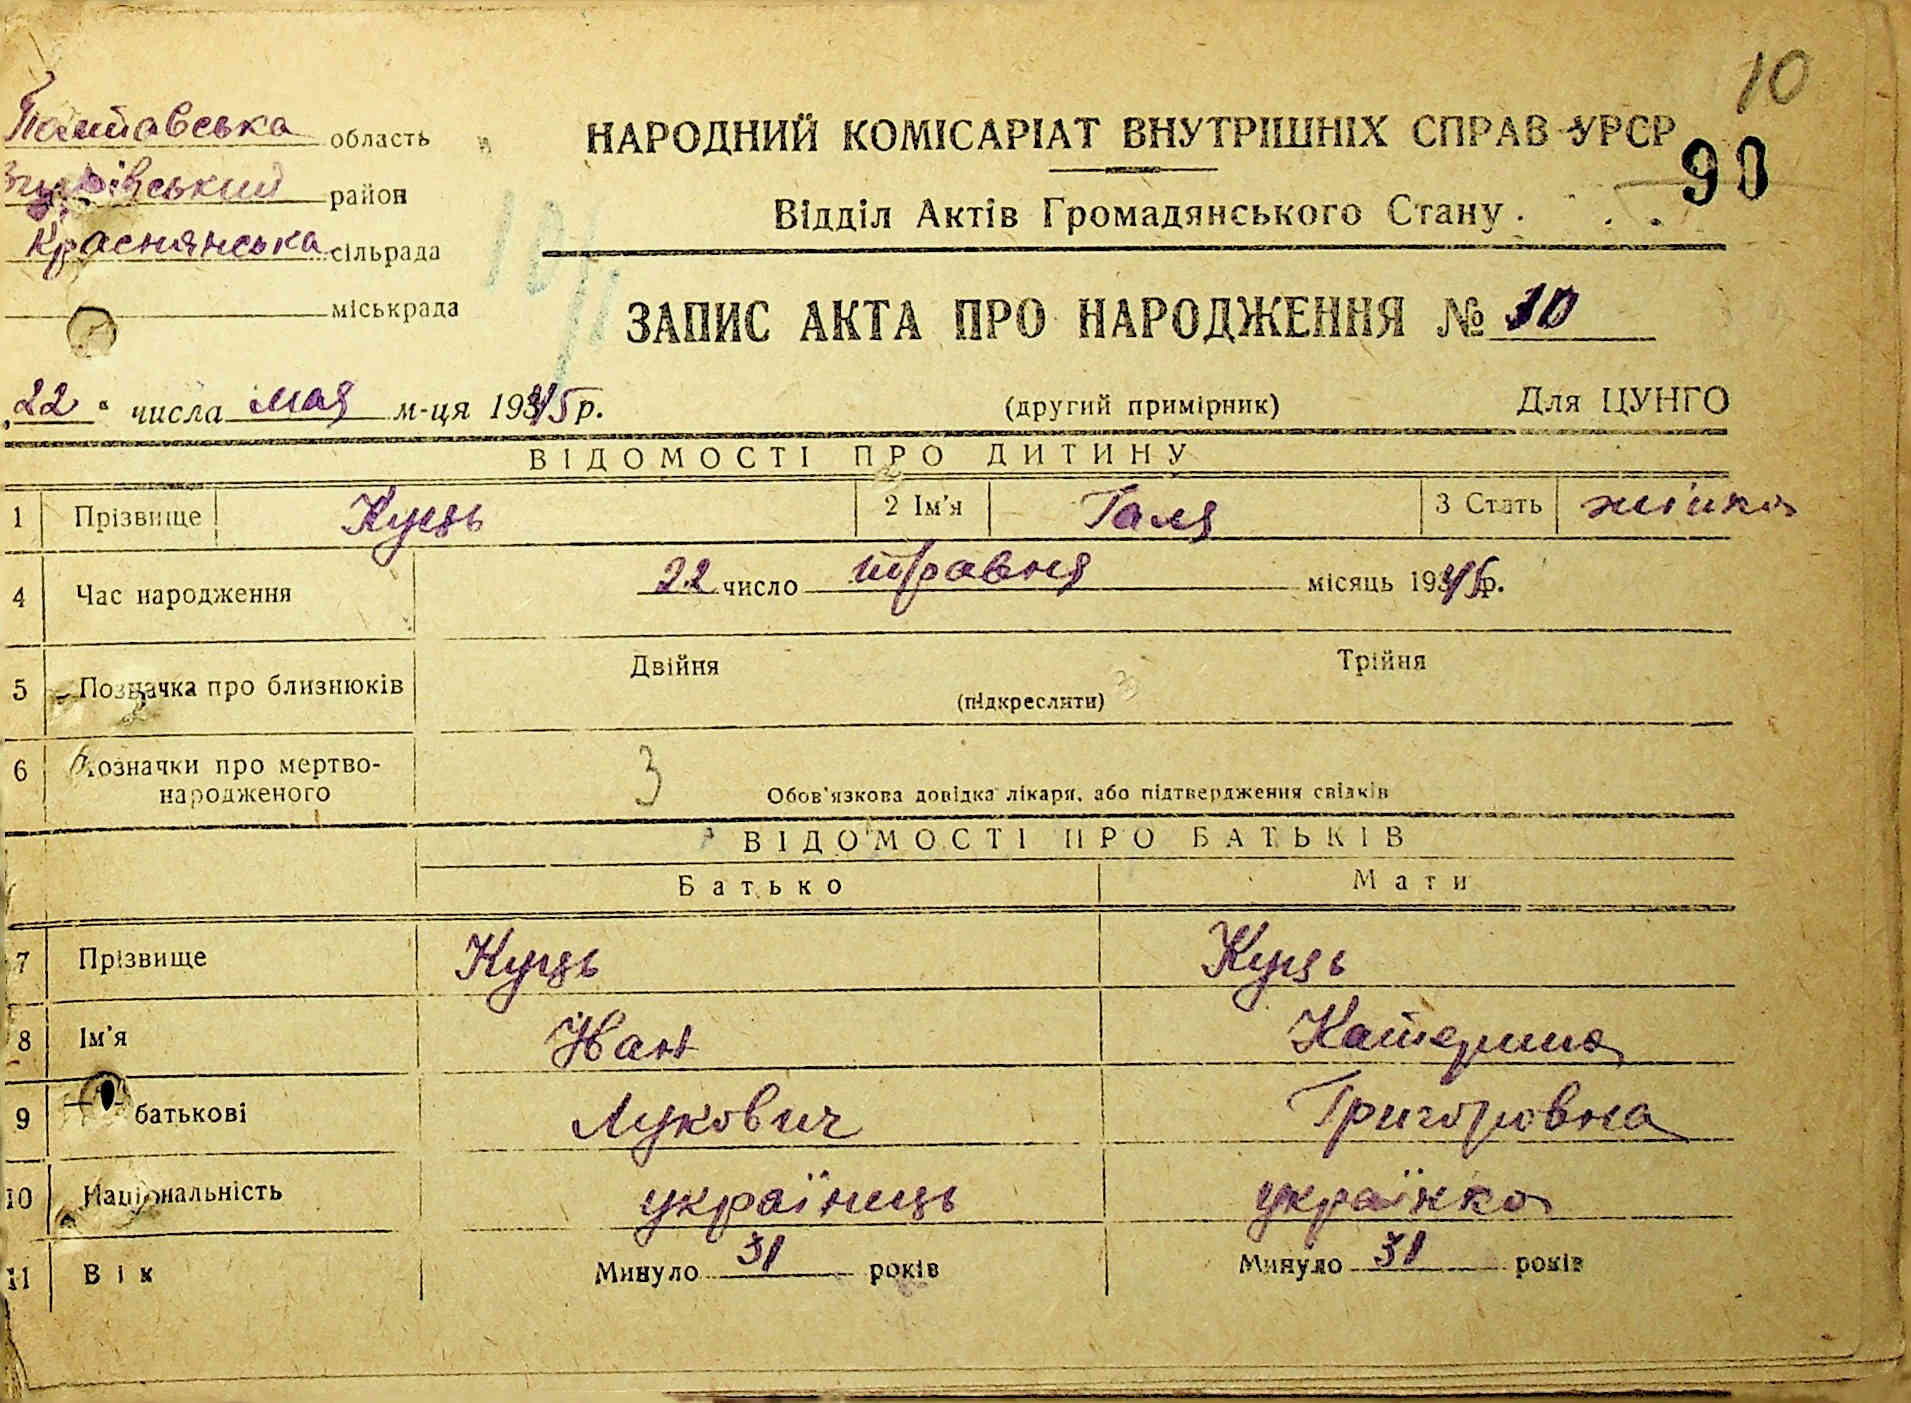 10
Полтавська область
Згурівський район
Краснянська сільрада
міськрада
НАРОДНИЙ КОМІСАРІАТ ВНУТРІШНІХ СПРАВ УРСР
90
Відділ Актів Громадянського Стану
ЗАПИС АКТА ПРО НАРОДЖЕННЯ № 10
„22“ числа мая м-ця 1945 р. (другий примірник) Для ЦУНГО
ВІДОМОСТІ ПРО ДИТИНУ
1 Прізвище Куць 2 Ім'я Галя 3 Стать жінка
4 Час народження 22 число травня місяць 1945 р.
5 Позначка про близнюків Двійня Трійня
(підкреслити)
6 Позначки про мертво-
народженого 3 Обов'язкова довідка лікаря, або підтвердження свідків
ВІДОМОСТІ ПРО БАТЬКІВ
Батько Мати
7 Прізвище Куць Куць
8 Ім'я Іван Катерина
9 батькові Лукович Григоровна
10 Національність українець українка
11 Вік Минуло 31 років Минуло 31 років